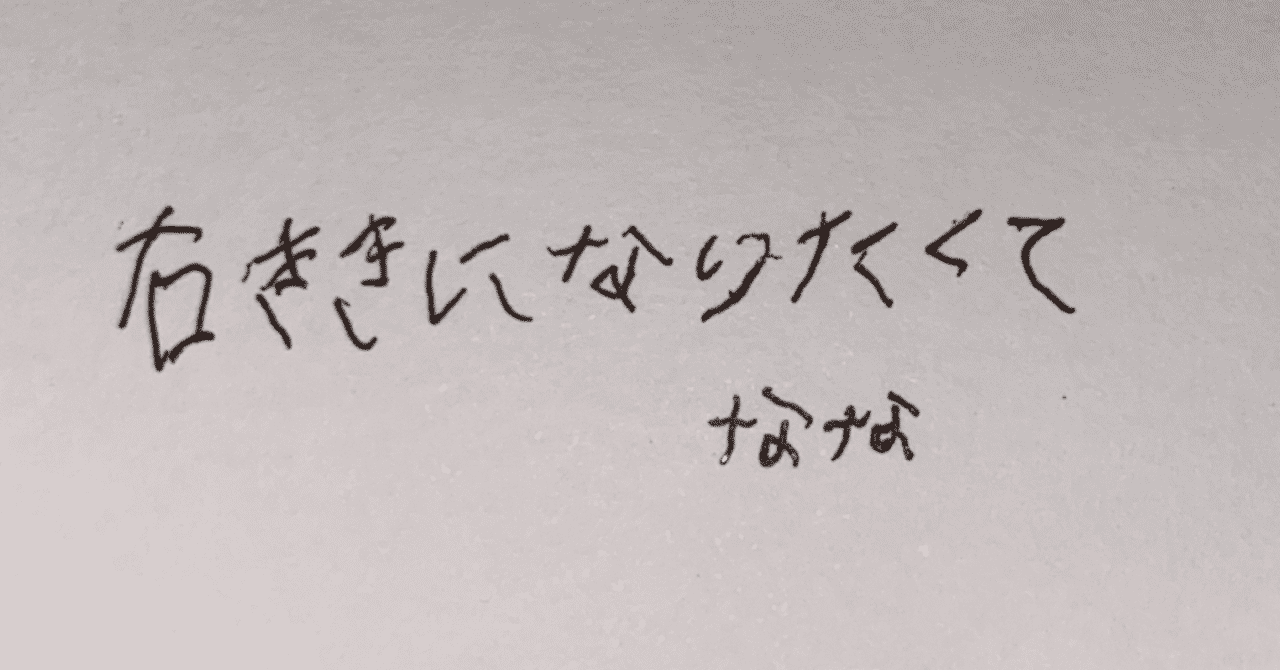 右ききになりたくて
なな